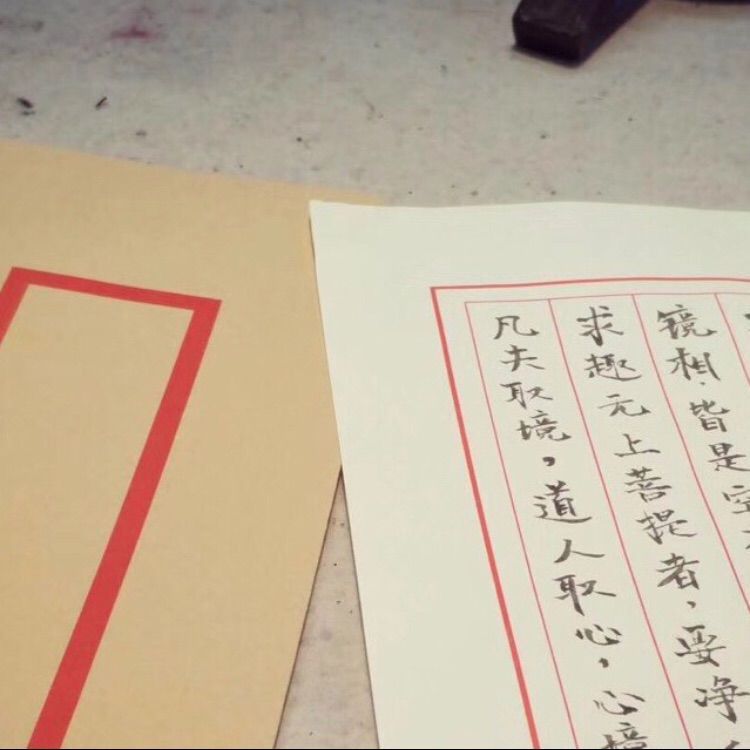 镜相、皆是空
求趣元上菩提者，要净
凡夫取境，道人取心，心境